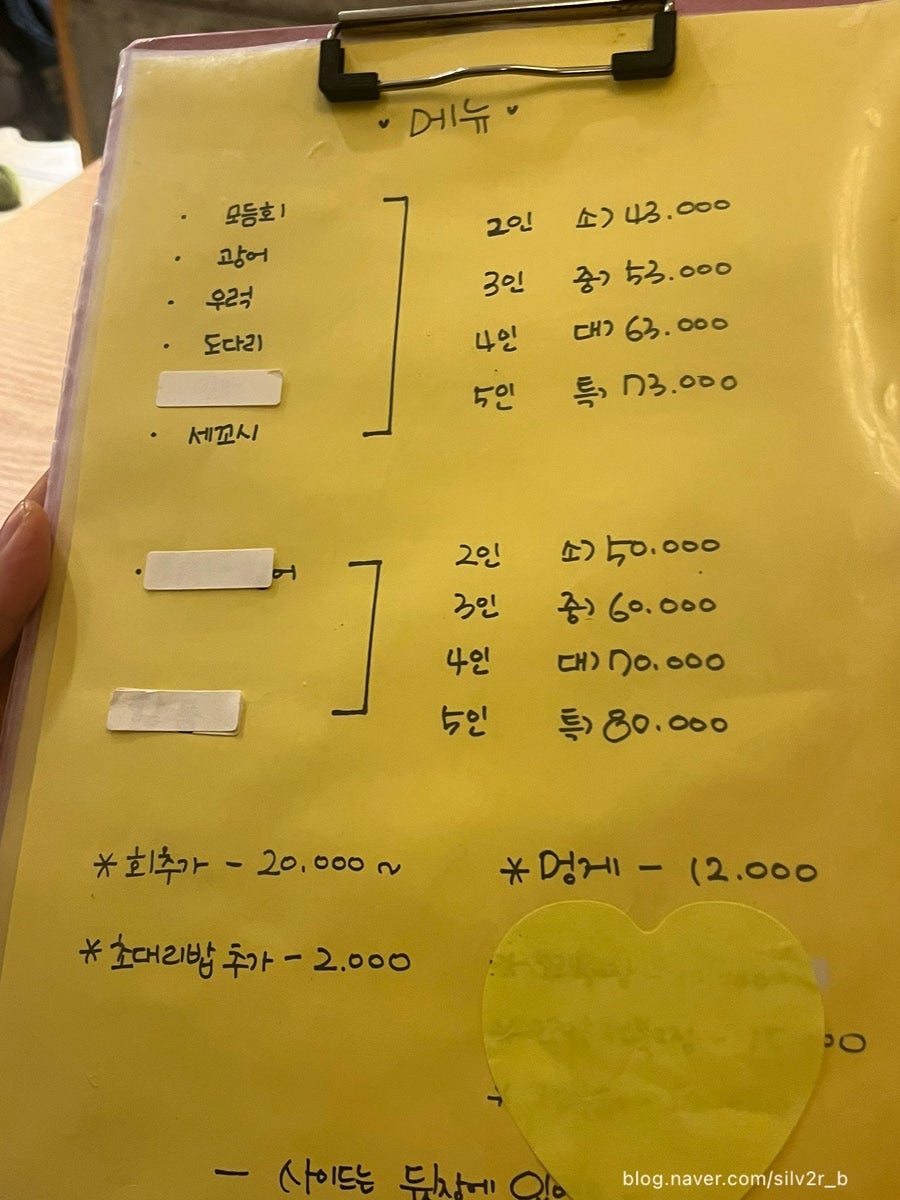 메뉴
· 모듬회
· 광어
· 우럭
· 도다리
· 세꼬시
2인 소) 43.000
3인 중) 53.000
4인 대) 63.000
5인 특) 73.000
어
2인 소) 50.000
3인 중) 60.000
4인 대) 70.000
5인 특) 80.000
* 회추가 - 20.000 ~
* 멍게 - 12.000
* 초대리밥 추가 - 2.000
- 사이드는 뒷장에
blog.naver.com/silv2r_b